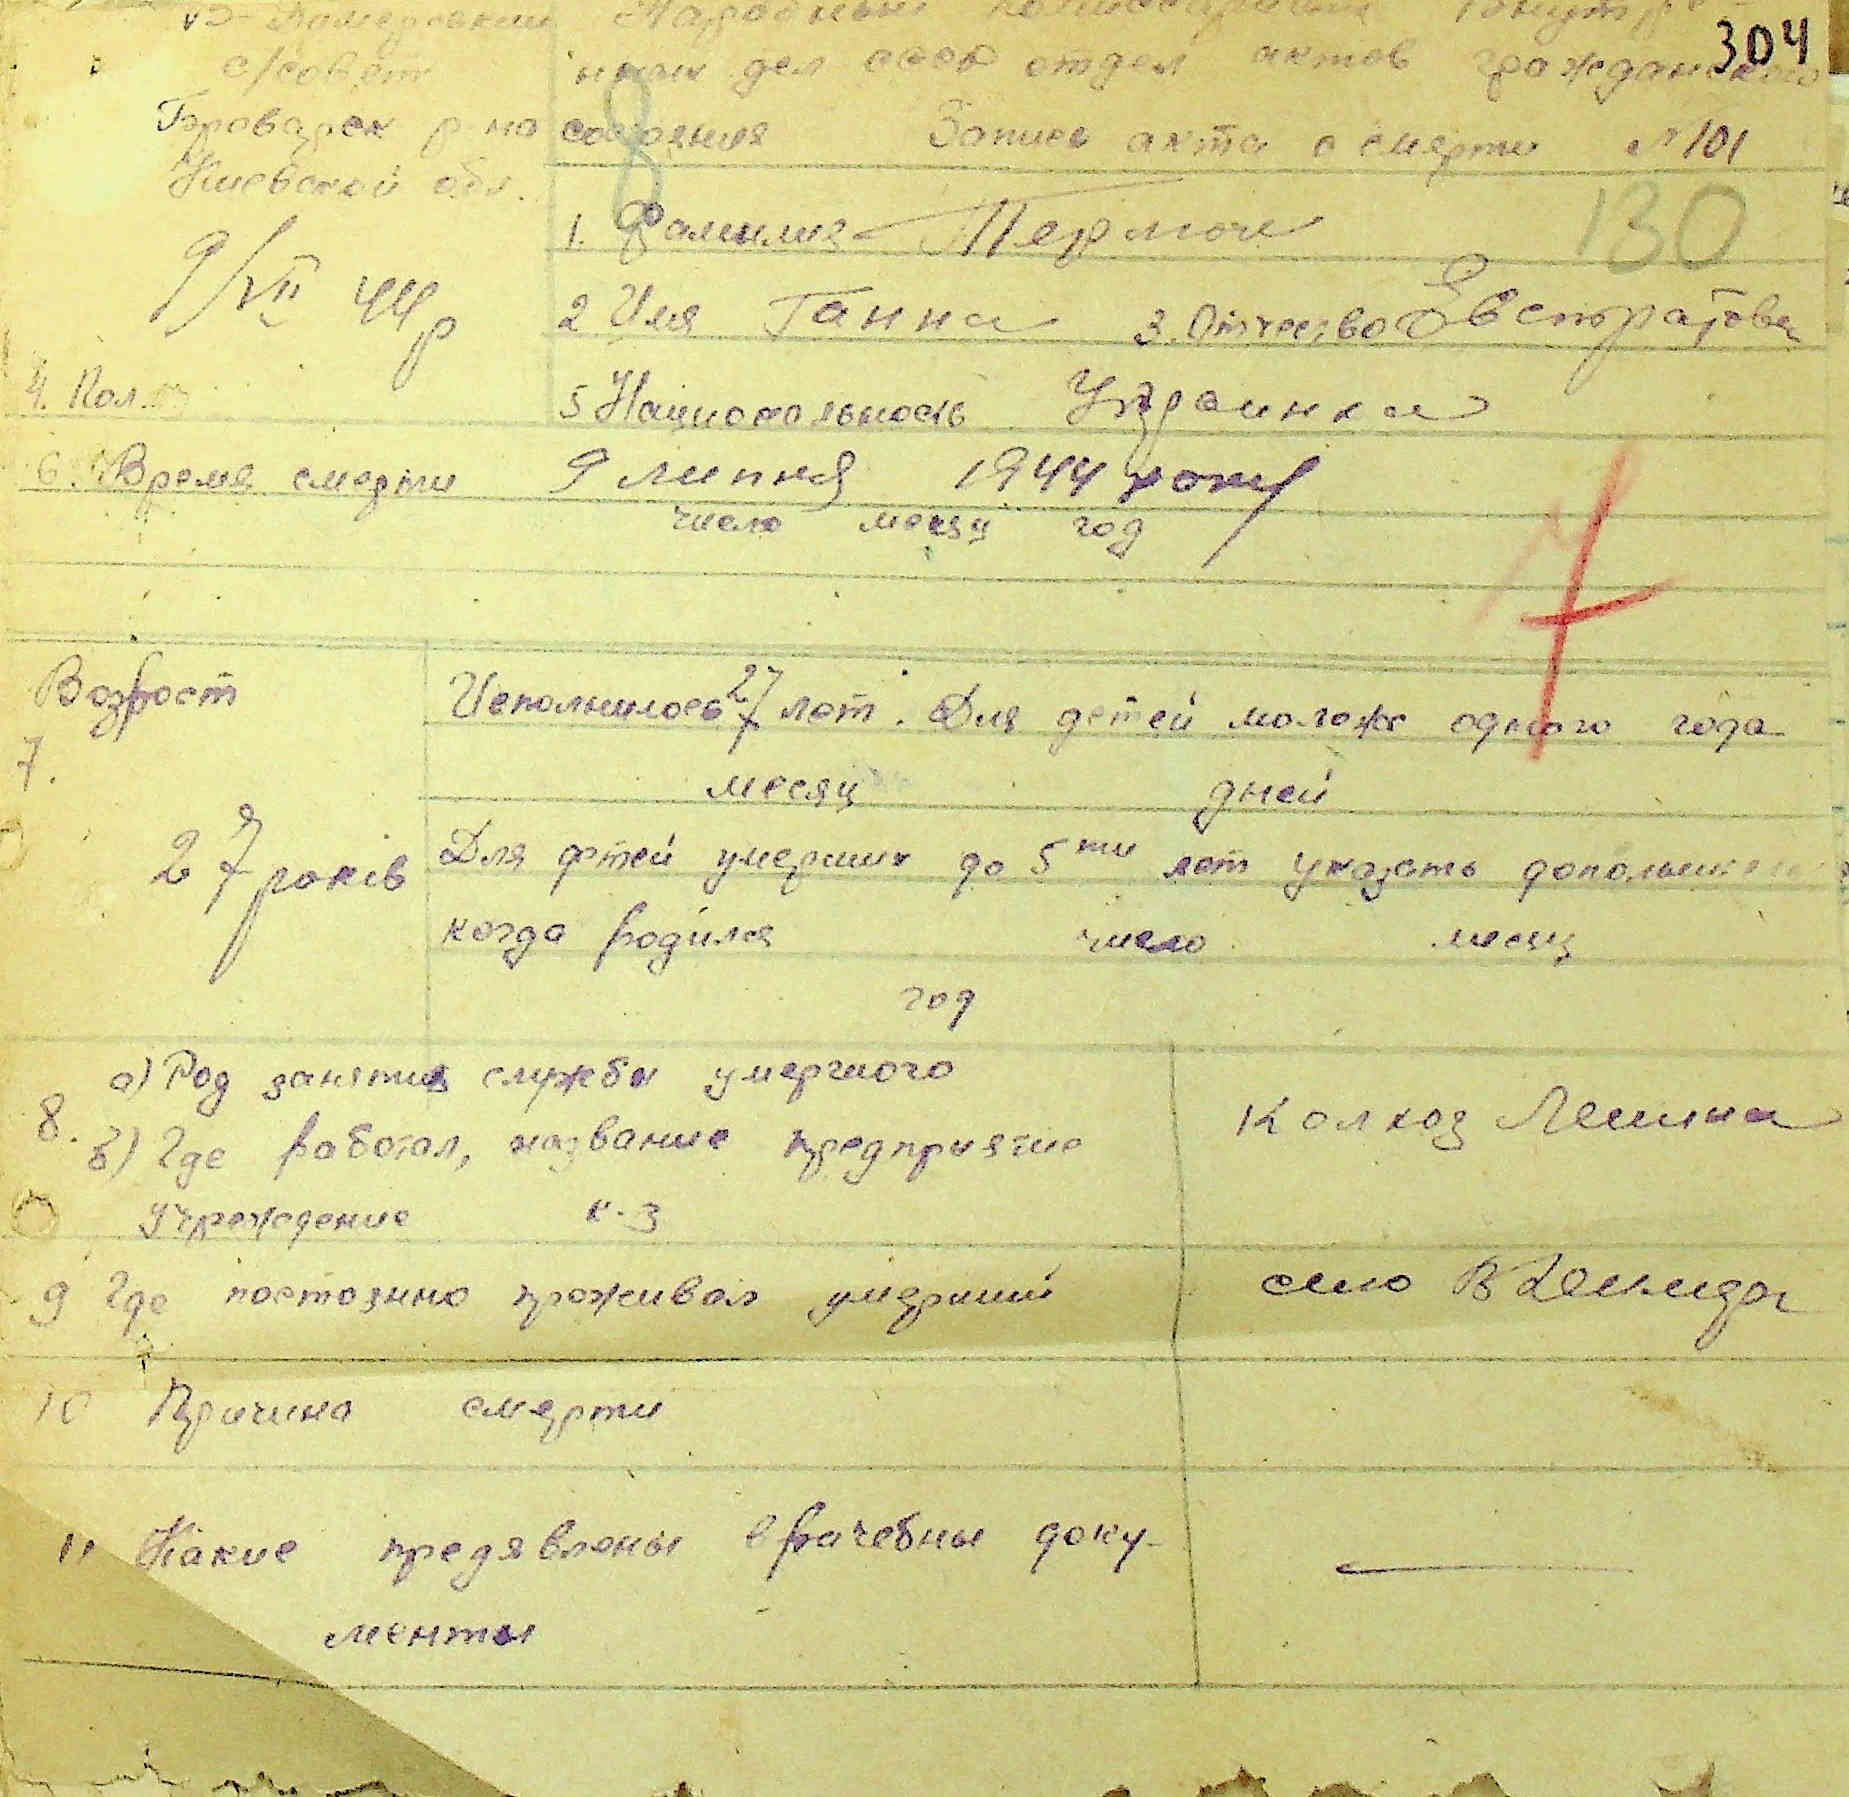 Народный Комиссариат Внутре-
304
с/совет
них дел СССР отдел актов гражданского
Броварск р-на
состояния Запись акта о смерти № 101
Киевской обл.
130
1. Фамилия
9/VII 44 р
2 Имя Ганна 3. Отчество Евстратовна
4. Пол
5 Национальность Украинка
6. Время смерти 9 липня 1944 року
число месяц год
Возраст
7.
Исполнилось 27 лет. Для детей моложе одного года
месяц дней
27 років
Для детей умерших до 5ти лет указать дополнительно
когда родился число месяц
год
8.
а) Род занятия службы умершого
б) Где работал, название предприятие
учреждение к-з
Колхоз Ленина
9 Где постоянно проживал умерший
село В Димерка
10 Причина смерти
11 Какие предявлены врачебны доку-
менты